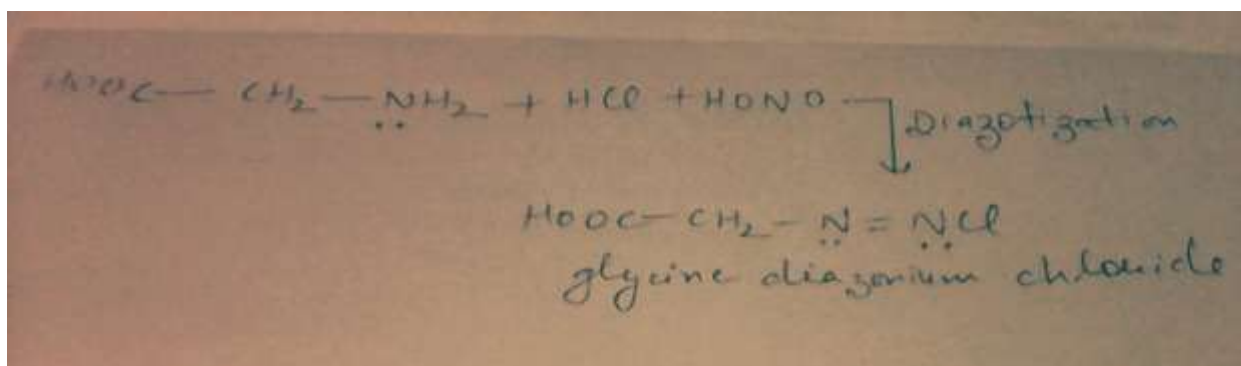 HOOC — CH₂ — N̤H₂ + HCl + HONO
Diazotization
HOOC — CH₂ — N̤ = N̤Cl
glycine diazonium chloride